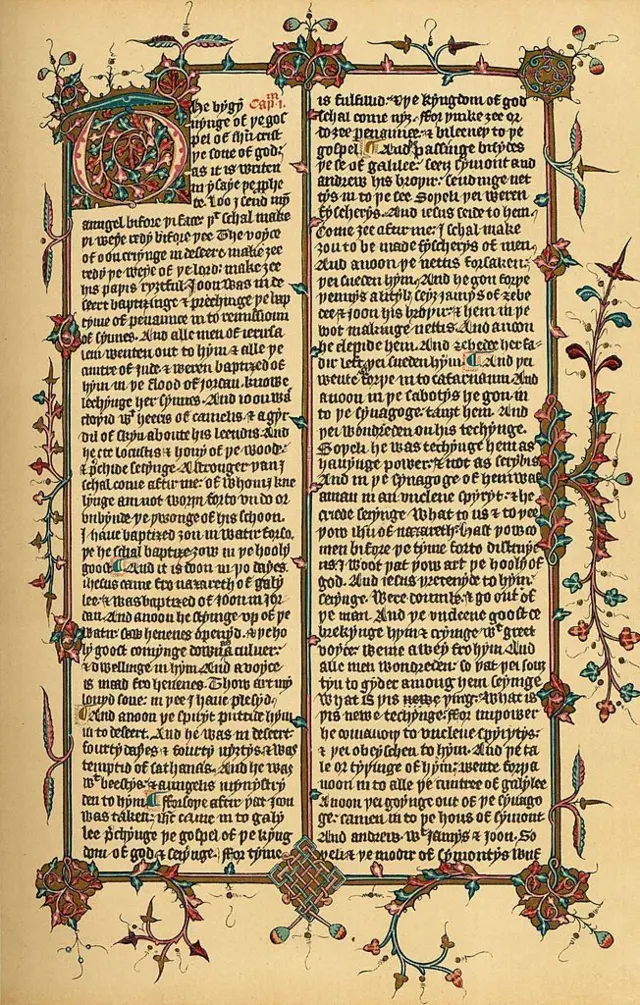 The bygy Cap. i.m
nynge of ye gos
pel of ihu crist
ye sone of god:
as it is writen
in ysaye ye pphe
te. Loo I send myn
aungel bifore yi face: yt schal make
yi weye redy bifore yee The voyce
of oon cryinge in desert: make zee
redy ye weye of ye lord: make zee
his payis ryztful. Joon was in de
seert baptizinge & prechinge ye bap
tyme of penaunce in to remissioun
of synnes. And alle men of ierusa
lem wenten out to hym & alle ye
cuntre of Jude & weren baptized of
hym in ye flood of jordan. knowe
lechynge her synnes. And Joon was
cloyid wt heeris of camelis & a gyr
dil of skyn aboute his leendis. And
he eet locustis & hony of ye wode:
& pchide seyinge. A stronger yan I
schal come aftir me: of whom I kne
lynge am not woryi forto vndo or
vnbynde ye ywonge of his schoon.
I haue baptized zou in watir forso.
ye he schal baptize zow in ye hooly
goost. And it is doon in yo dayes.
ihesus came fro nazareth of galy
lee. & was baptized of Joon in Jor
dan. And anoon he styinge up of ye
watir saw heuenes openyd. & ye ho
ly goost comynge doun a culuer.
& dwellinge in hym. And a voyce
is maad fro heuenes. Thow art my
louyd sone: in yee I haue plesyd.
And anoon ye spiryt puttide hym
in to desert. And he was in desert
fourty dayes & fourty nyztys & was
temptid of sathanas. And he was
wt beestys: & aungelis mynystry
den to hym. fforsoye after yat Joon
was taken: ihc came in to galy
lee pchynge ye gospel of ye kyng
dom of god & seyinge. ffor tyme
is fulfillid. & ye kyngdom of god
schal come nyz. ffor yinke zee or
do zee penaunce. & bileeuey to ye
gospel. And passinge bisydes
ye se of galilee. seez symont and
andrew his broyir. sendinge net
tys in to ye see. Soyeli yei weren
fyscherys. And iesus seide to hem.
Come zee aftir me: I schal make
zou to be made fyscherys of men.
And anoon ye nettis forsaken:
yei sueden hym. And he gon forye
yennys a lityl: seyz jamys of zebe
dee & joon his broyir: & hem in ye
boot makinge nettis. And anoon
he clepide hem. And zebedee her fa-
dir left: yei sueden hym. And yei
wente forye in to cafarnaum. And
anoon in ye sabotys he gon in
to ye synagoge. tauzt hem. And
yei wondreden on his techynge.
Soyeli he was techynge hem as
hauynge power. & not as scrybis
And in ye synagoge of hem was
a man in an vnclene spyryt. & he
criede seyinge. What to us & to yee
yow ihu of nazareth: hast yow co
men bifore ye tyme forto distruye
us. I woot yat yow art ye hooly of
god. And iesus yretenyde to hym
seyinge. Were doumb: & go out of
ye man. And ye vnclene goost de
brekynge hym & cryinge wt greet
voyce: wente awey fro hym. And
alle men wondreden: so yat yei souz
ten to gyder among hem seyinge
What is yis newe ying: What is
yis newe techynge: ffor in power
he comaundiy to vnclene spyrytys:
& yei obeyschen to hym. And ye ta
le or tyyinge of hym: wente forya
noon in to alle ye cuntree of galylee
Anoon yei goynge out of ye synago
ge. camen in to ye hous of symont
And andrew. wt jamys & joon. So
yeli & ye modir of symontys wiif